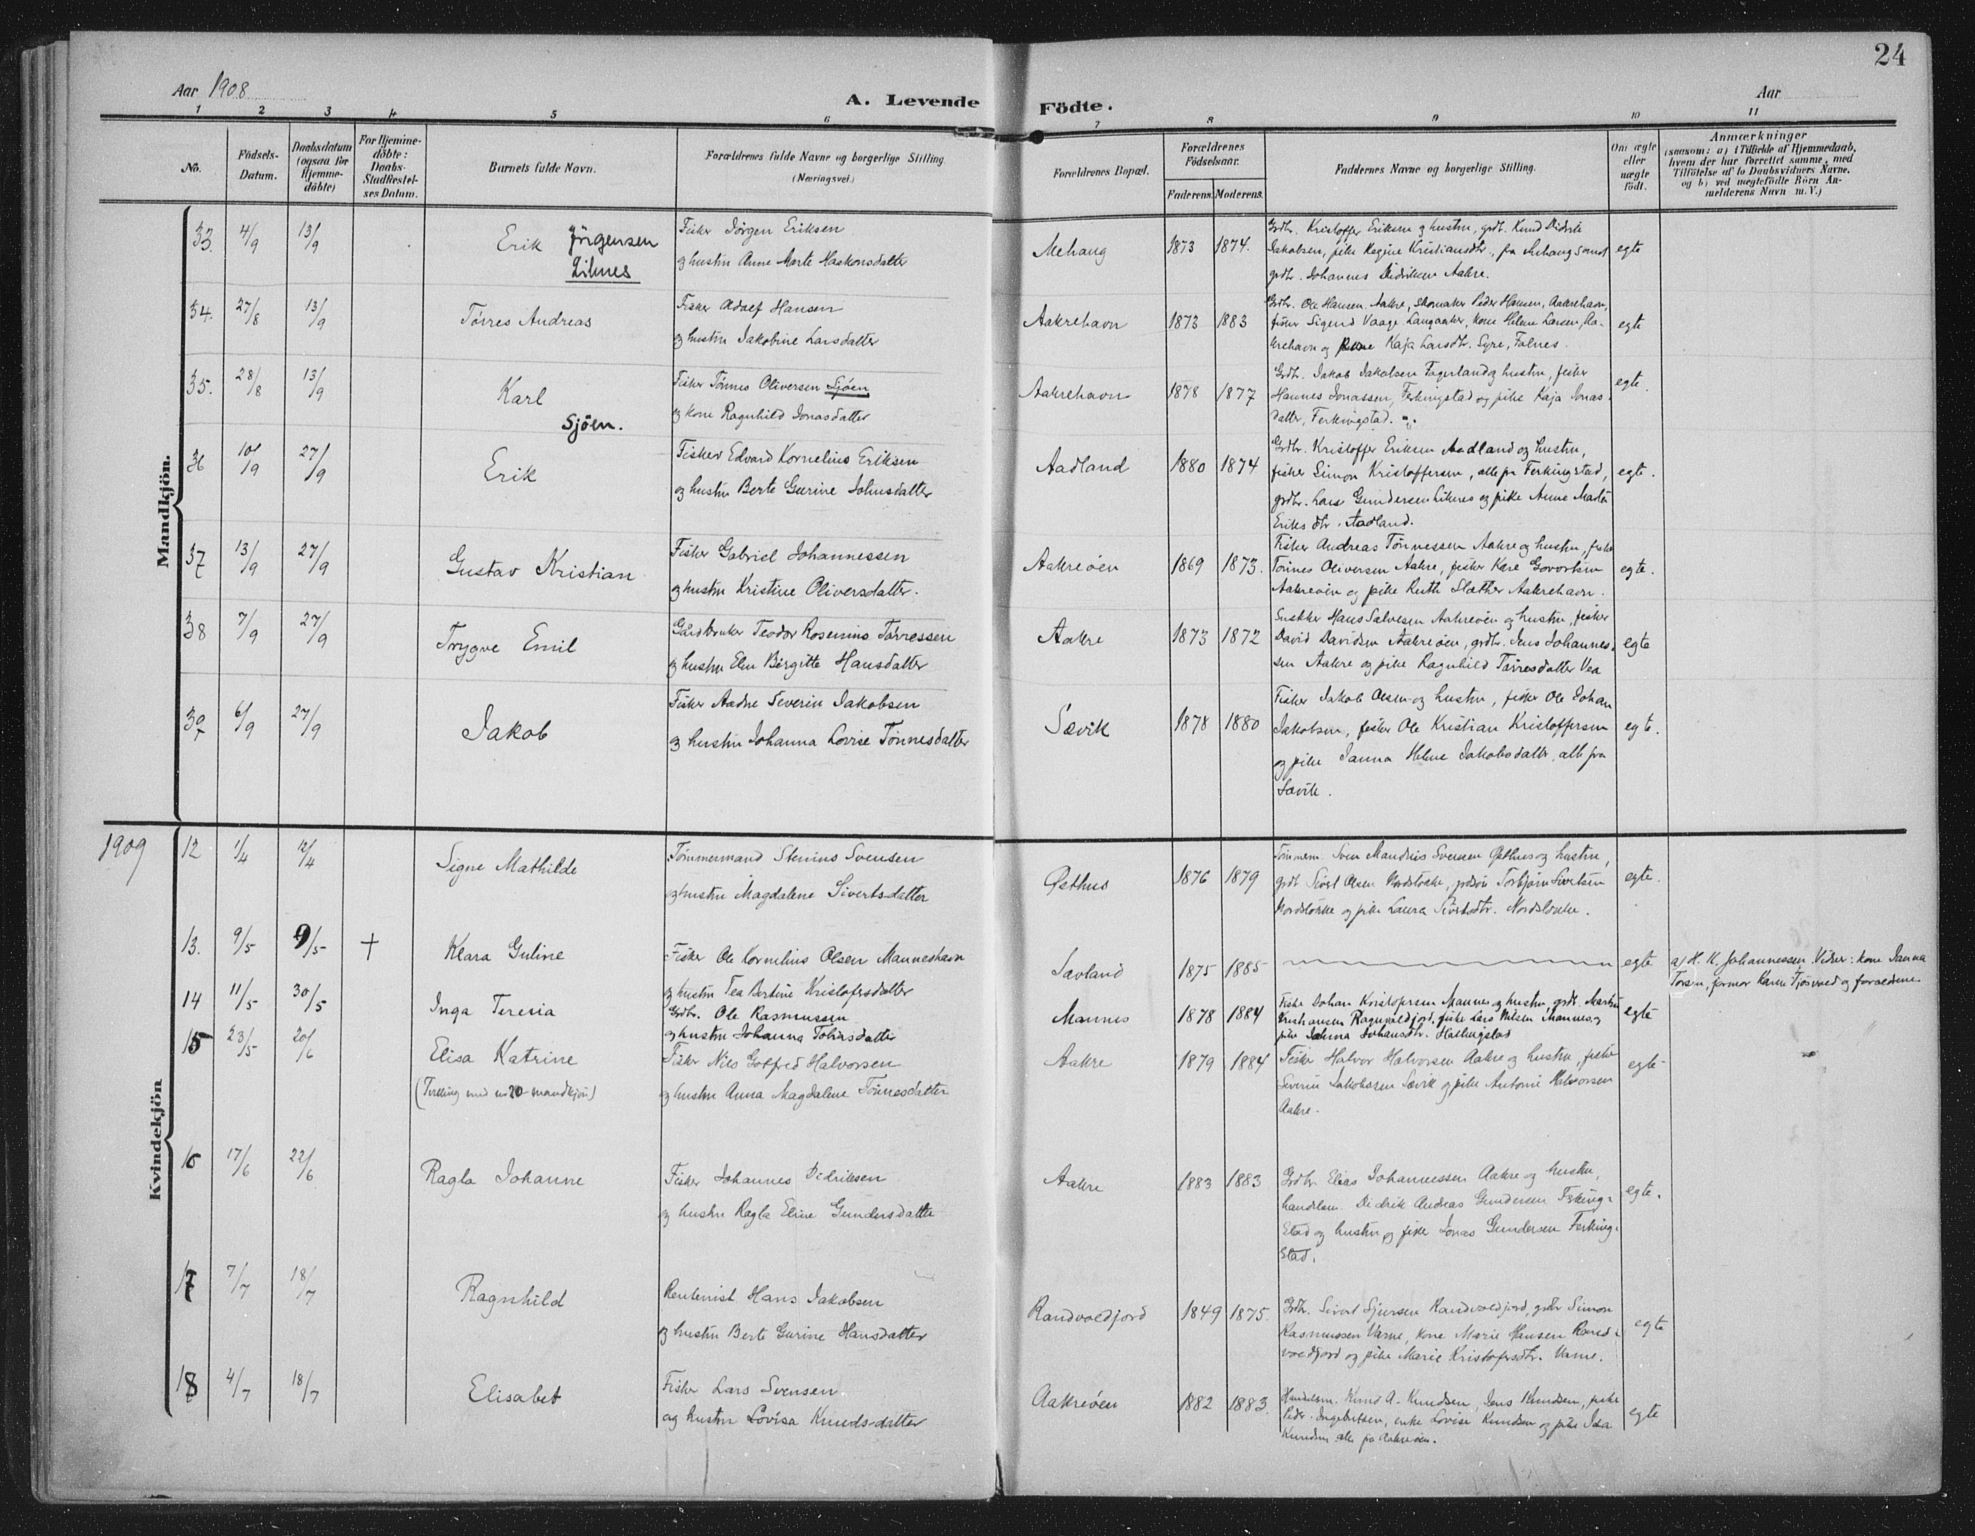 24
Aar 1908
A. Levende Födte.
Aar
1 2 3 4 5 6 7 8 9 10 11
No.
Födsels-Datum.
Daabsdatum (ogsaa for Hjemme-döbte)
For Hjemme-döbte: Daabs-Stadfæstel-ses Datum.
Barnets fulde Navn.
Forældrenes fulde Navne og borgerlige Stilling (Næringsvei.)
Forældrenes Bopæl.
Forældrenes Födselsaar.
Faderens. Moderens.
Faddernes Navne og borgerlige Stilling.
Om ægte eller uægte födt.
Anmærkninger
(saasom: a) i Tilfælde af Hjemmedaab, hvem der har forrettet samme, med Tilföielse af to Daabsvidners Navne, og b) ved uægtefödte Börn An-melderens Navn m. V.)
Mandkjön.
33. 4/9 13/9 Erik Jörgensen Liknes
Fisker Jörgen Eriksen
og hustru Anne Marte Haakonsdatter
Mehaug 1873 1874.
Grdbr. Kristoffer Eriksen og hustru, grdb. Knud Didrik
Jakobsen, pike Regine Kristiansdtr., fra Mehaug samt
grdbr. Johannes Didriksen Aakre.
egte
34. 27/8 13/9 Törres Andreas
Fisker Adolf Hansen
og hustru Jakobine Larsdatter
Aakrehavn 1873 1883
Grdbr. Ole Hansen Aakre, skomaker Peder Hansen, Aakrehavn,
fisker Sigurd Vaage Langaaker, kone Helene Larsen, Aa-
krehavn og pike Kaja Larsdtr. Syre, Falnes.
egte
35. 28/8 13/9 Karl Sjöen.
Fisker Tönnes Oliversen Sjöen
og kone Ragnhild Jonasdatter
Aakrehavn 1878 1877
Grdbr. Jakob Jakobsen Fagerland og hustru, fisker
Hannes Jonassen, Ferkingstad og pike Kaja Jonas-
datter, Ferkingstad.
egte.
36 10/9 27/9 Erik
Fisker Edvard Kornelius Eriksen
og hustru Berte Gurine Johnsdatter
Aadland 1880 1874
Grdbr. Kristoffer Eriksen Aadland og hustru,
fisker Simon Kristoffersen, alle fra Ferkingstad,
grdbr. Lars Gundersen Liknes og pike Anne Marta
Eriksdtr. Aadland.
egte.
37 13/9 27/9 Gustav Kristian
Fisker Gabriel Johannessen
og hustru Kristine Oliversdatter.
Aakreöen 1869 1873.
Fisker Andreas Tönnessen Aakre og hustru, fisker
Tönnes Oliversen Aakre, fisker Kare
Aakreöen og pike Ruth Aakrehavn.
egte.
38 7/9 27/9 Trygve Emil
Gaardbruker Teodor Rosenius Törressen
og hustru Elen Birgitte Hansdatter
Aakre 1873 1872
Hans Salvesen Aakreöen og hustru, fisker
David Davidsen Aakreöen, grdbr. Jens Johannes-
sen Aakre og pike Ragnhild Törresdatter Vea
egte
39 6/9 27/9 Jakob
Fisker Aadne Severin Jakobsen
og hustru Johanna Lovise Tönnesdatter
Sævik 1878 1880
Fisker Jakob Olsen og hustru, fisker Ole Johan
Jakobsen, fisker Ole Kristian Kristoffersen
og pike Janna Helene Jakobsdatter, alle fra
Sævik.
egte.
1909
Kvindekjön
12 1/4 12/4 Signe Mathilde
Tömmermand Stenius Svensen
og hustru Magdalene Sivertsdatter
Østhus 1876 1879
Tömmerm. Sven Mandius Svensen Østhus og hustru,
grdb. Sivert Olsen Nordstokke, grdsön Torbjörn Sivertsen
Nordstokke og pike Laura Sivertsdtr. Nordstokke.
egte.
13. 9/5 9/5 + Klara Guline
Fisker Ole Kornelius Olsen Manneshavn
og hustru Tea Bertine Kristofersdatter
Sævland 1875 1885
egte
a) H. K. Johannessen Vidner: kone Janna
Torsen, farmor Karen Tjösvold og forældrene
14 11/5 30/5 Inga Teresia
Grdbr. Ole Rasmussen
og hustru Johanna Tobiasdatter
Mannes 1878 1884
Fisker Johan Kristofersen Mannes og hustru, grdb. Martin
Kristiansen Ragnvaldfjord, fisker Lars Nilsen Mannes og
pike Janna Johansdtr. Hallingstad
egte
15 23/5 20/6 Elisa Katrine
(Tvilling med no 20 mandkjön)
Fisker Nils Gotfred Halvorsen
og hustru Anna Magdalene Tönnesdatter
Aakre 1879 1884
Fisker Halvor Halvorsen Aakre og hustru, fisker
Severin Jakobsen Sævik og pike Antonie Halvorsen
Aakre.
egte
16 17/6 22/6 Ragla Johanne
Fisker Johannes Didriksen
og hustru Ragla Eline Gundersdatter
Aakre 1883 1883
Grdbr. Elias Johannessen Aakre og hustru,
handelsm. Didrik Andreas Gundersen Ferking-
stad og hustru og pike Jonas Gundersen Ferking-
stad.
egte.
17 7/7 18/7 Ragnhild
Rentenist Hans Jakobsen
og hustru Berte Gurine Hansdatter
Randvoldfjord 1849 1875.
Grdbr. Sivert Sjursen Randvoldfjord, grdbr Simon
Rasmussen Varne, kone Marie Hansen Rand-
voldfjord og pike Marie Kristofersdtr. Varne.
egte
18 4/7 18/7 Elisabet
Fisker Lars Svensen
og hustru Lovisa Knudsdatter
Aakreöen 1882 1883.
Handelsm. Knud A. Knudsen, Jens Knudsen, pike
Peder Ingebretsen, enke Lovise Knudsen og pike Ida
Knudsen alle fra Aakreöen.
egte